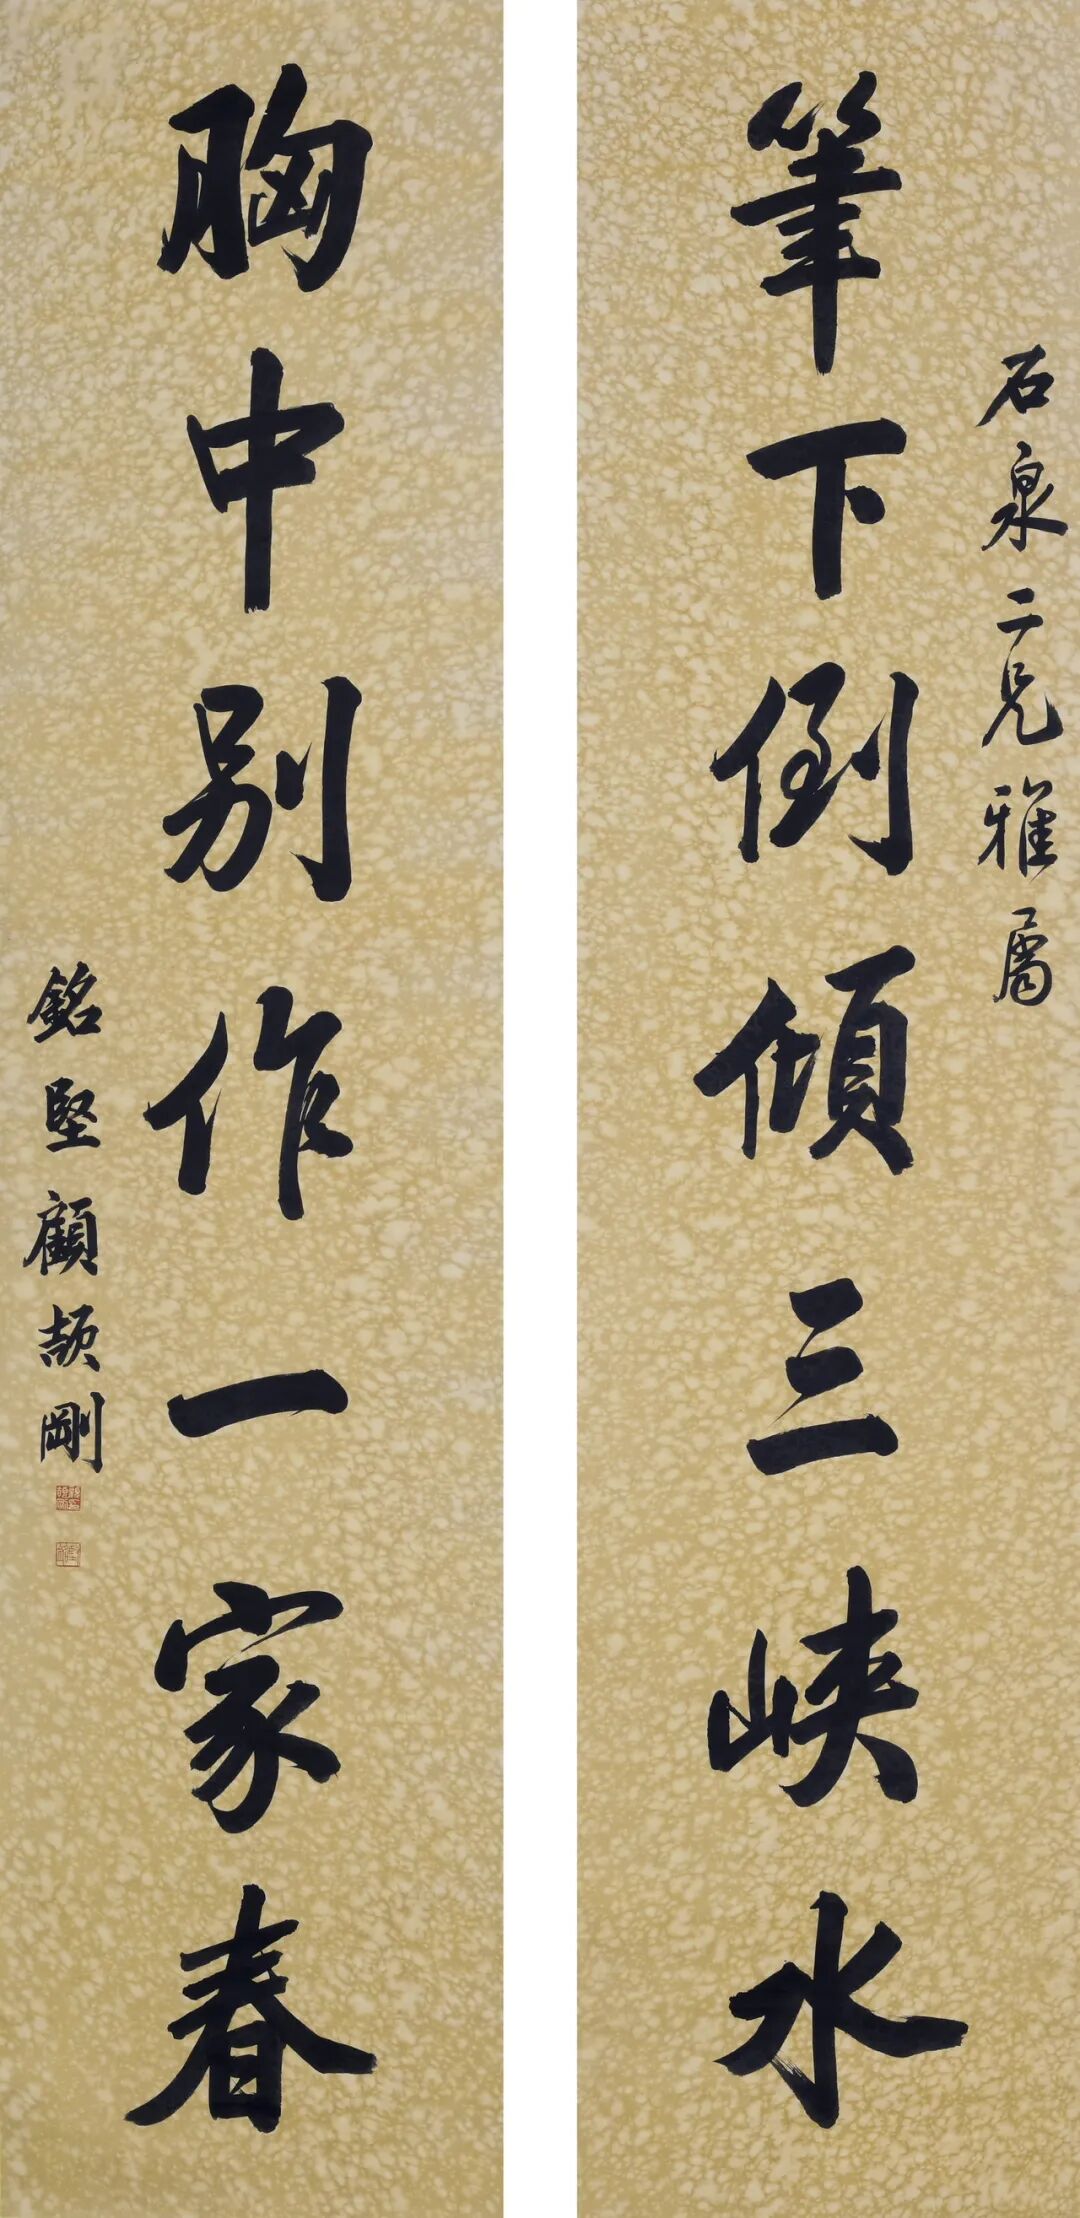 石泉二兄雅屬
筆下倒傾三峽水
胸中別作一家春
銘堅顧頡剛